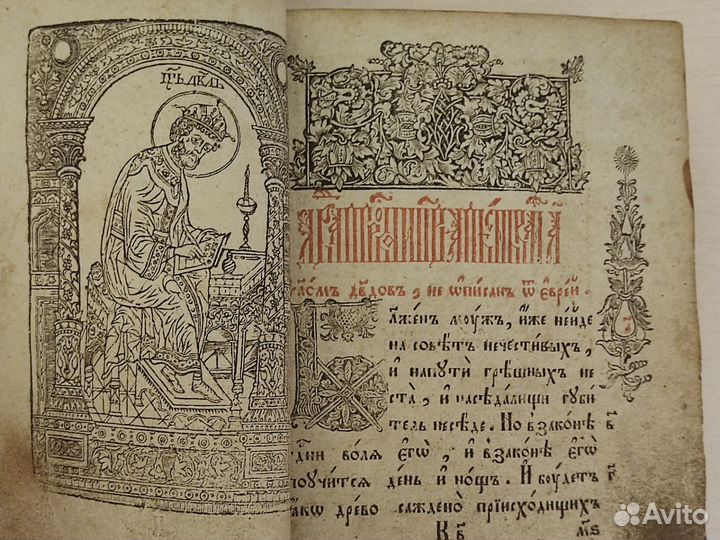 ЦРЬ ДВДЪ
ломъ дв҃довъ , не ѡписан ѿ еврей .
Блаженъ моужъ, иже нейде
на совѣтъ нечестивыхъ ,
и напути грѣшных не
ста , и наседалищи губи
тель неседе . Но взаконѣ
дни волѧ єгѡ , и взаконѣ єгѡ
поучитсѧ день и нощъ . И боудетъ
ꙗкѡ древо саждено приисходищих
К в҃ мѕ
Avito